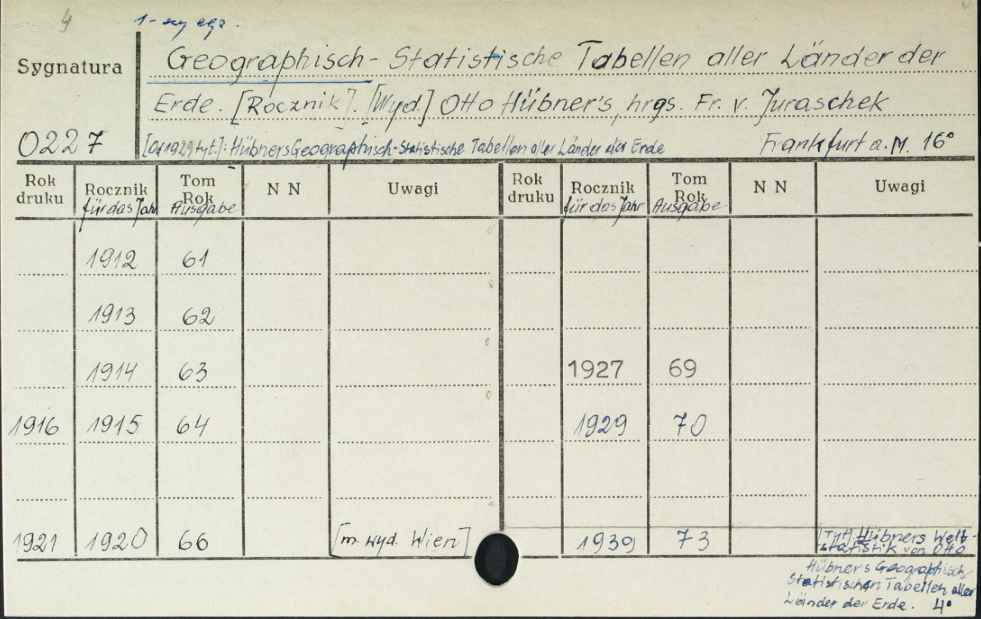 4
1-szy egz.
Sygnatura
Geographisch-Statistische Tabellen aller Länder der
Erde. [Rocznik]. [Wyd.] Otto Hübner's, hrgs. Fr. v. Juraschek
0227
[Od 1929 tyt.]: Hübners Geographisch-Statistische Tabellen aller Länder der Erde
Frankfurt a. M. 16°
Rok druku | Rocznik für das Jahr | Tom Rok Ausgabe | N N | Uwagi | Rok druku | Rocznik für das Jahr | Tom Rok Ausgabe | N N | Uwagi
1912 61
1913 62
1914 63 1927 69
1916 1915 64 1929 70
1921 1920 66 [m. wyd. Wien] 1939 73 [Tyt] Hübners Welt-
statistik von Otto
Hübners Geographisch
Statistischen Tabellen aller
Länder der Erde. 4°